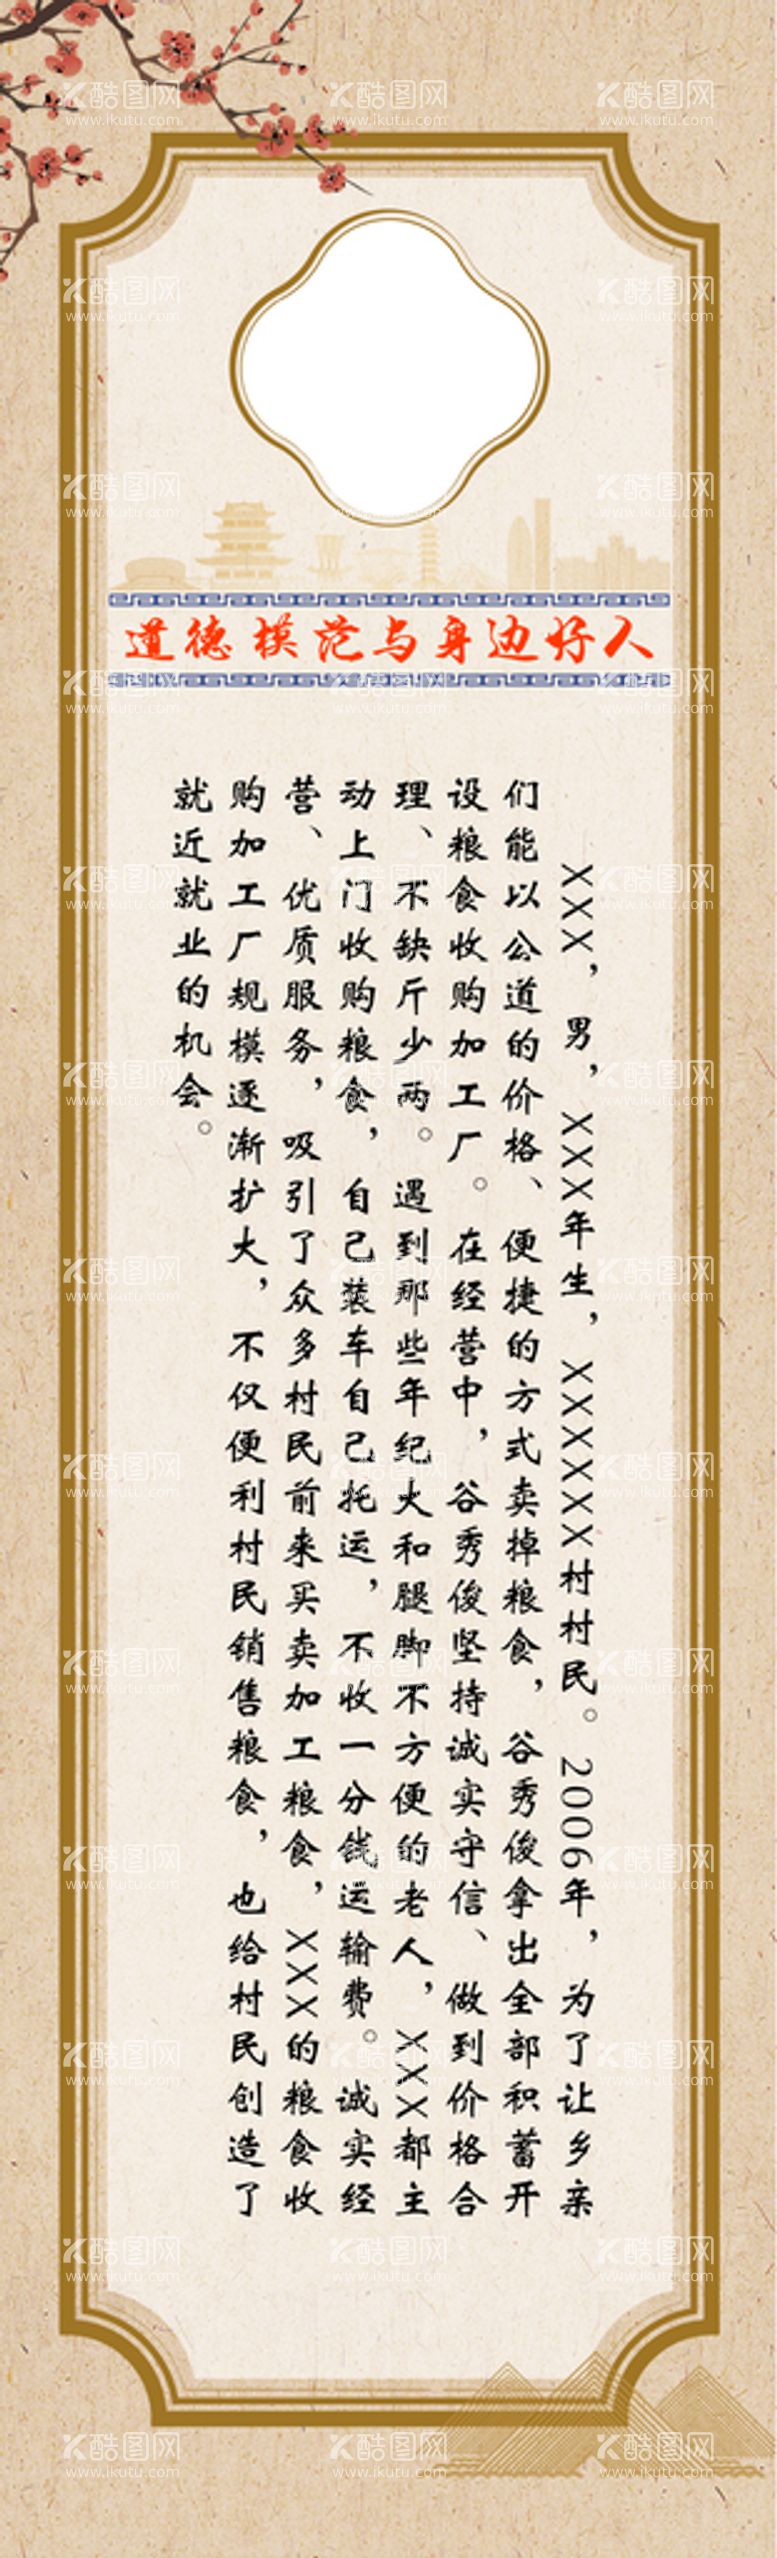 道德模范与身边好人
XXX，男，XXX年生，XXXXXX村村民。2006年，为了让乡亲
们能以公道的价格、便捷的方式卖掉粮食，谷秀俊拿出全部积蓄开
设粮食收购加工厂。在经营中，谷秀俊坚持诚实守信、做到价格合
理、不缺斤少两。遇到那些年纪大和腿脚不方便的老人，XXX都主
动上门收购粮食，自己装车自己托运，不收一分钱运输费。诚实经
营、优质服务，吸引了众多村民前来买卖加工粮食，XXX的粮食收
购加工厂规模逐渐扩大，不仅便利村民销售粮食，也给村民创造了
就近就业的机会。
酷图网
www.ikutu.com